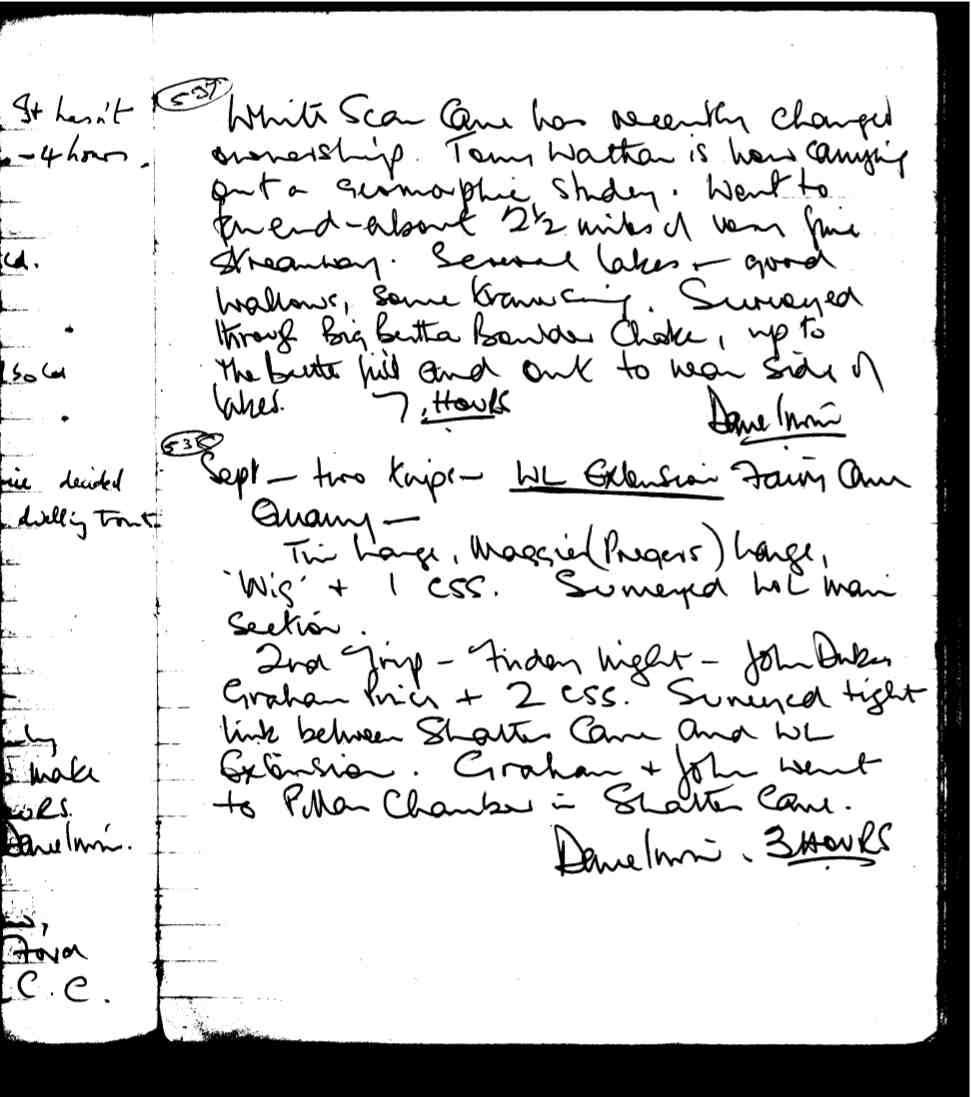 It hasn't
- 4 hours.
cd.
decided
dwelling Trout
make
Dave Irwin.
C. C.
537
White Scar Cave has recently changed
ownership. Tony Waltham is now carrying
out a geomorphic study. Went to
far end - about 2½ miles of very fine
streamway. Several lakes - good
wallows, some traversing. Surveyed
through Big Bertha Boulder Choke, up to
the and out to near side of
lakes. 7. HOURS
Dave Irwin
538
Sept - two trips - WL Extension Fairy Cave
Quarry -
Tim Large, Maggie (Pregers) Large,
'Wig' + 1 CSS. Surveyed WL main
section.
2nd Trip - Friday night - John Dukes
Graham Price + 2 CSS. Surveyed tight
link between Shatter Cave and WL
Extension. Graham + John went
to Pillar Chamber in Shatter Cave.
Dave Irwin. 3 HOURS